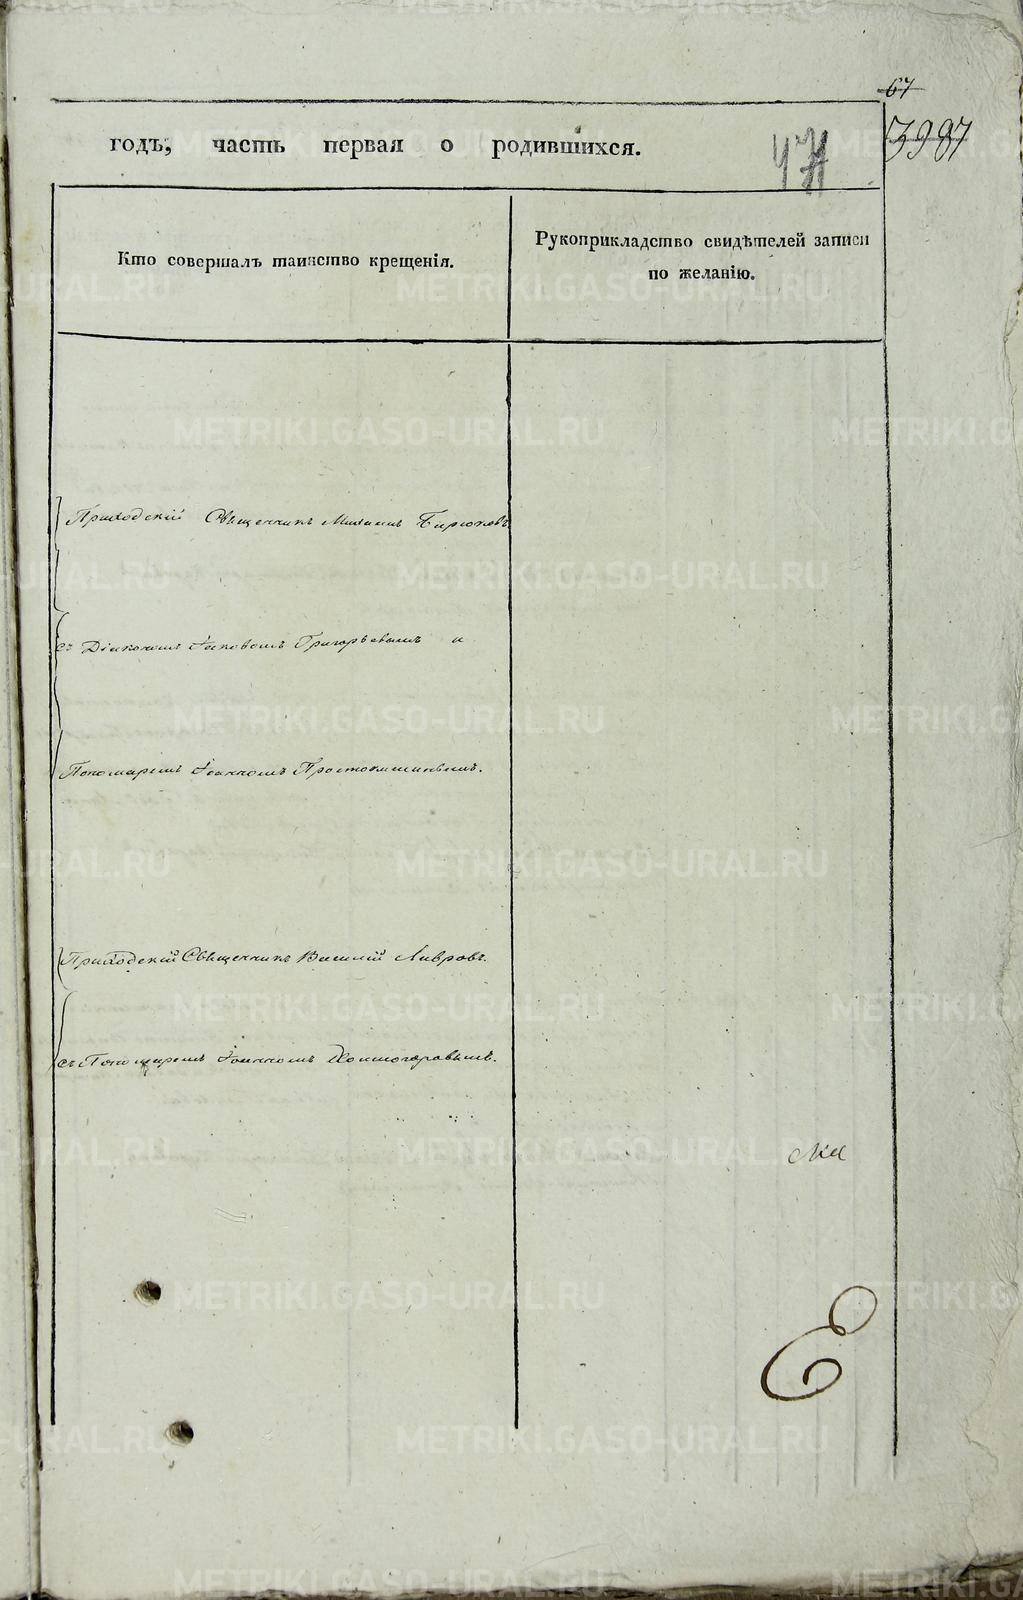 67
3987
годъ, часть первая о родившихся.
Кто совершалъ таинство крещенія.
Рукоприкладство свидѣтелей записи
по желанію.
Приходскій Священникъ Михаилъ Бирюковъ
съ Діакономъ Іаковомъ Григорьевымъ и
Пономаремъ Іоанномъ Простокишинымъ.
Приходскій Священникъ Василій Лавровъ.
съ Пономаремъ Іоанномъ Холмогоровымъ.
METRIKI.GASO-URAL.RU